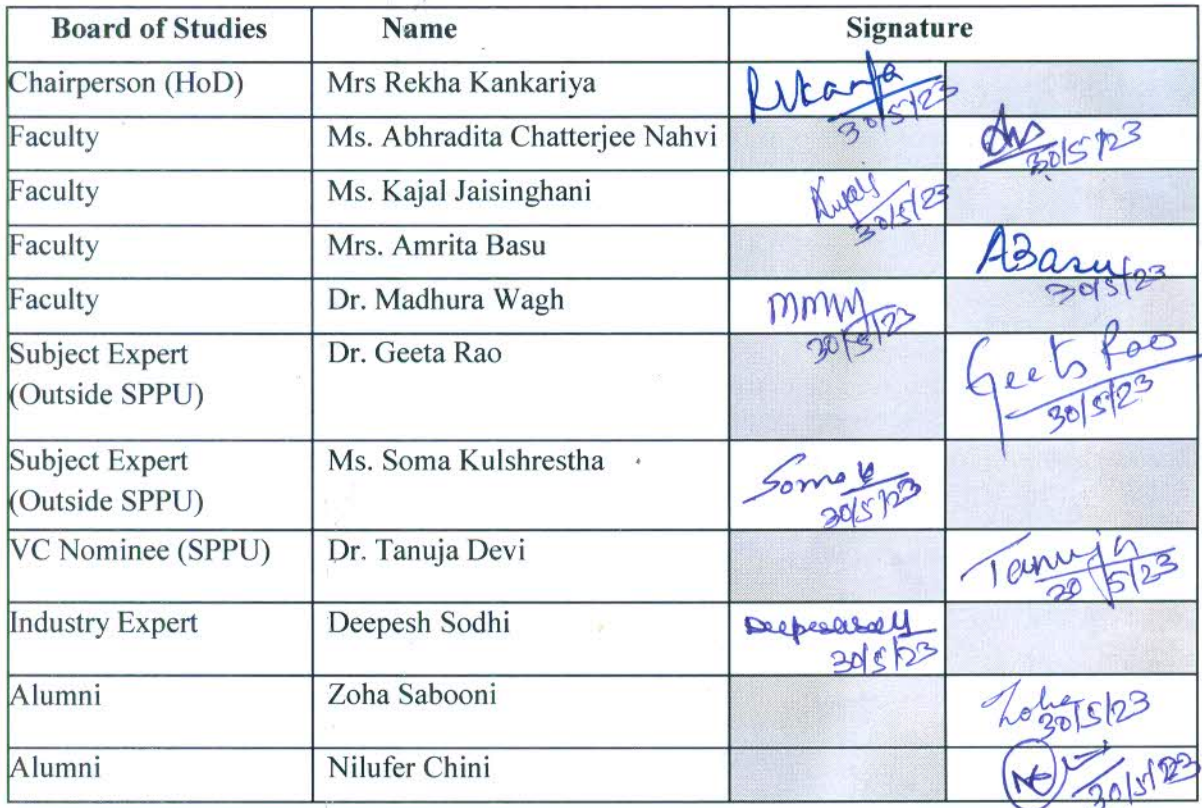 Board of Studies Name Signature
Chairperson (HoD) Mrs Rekha Kankariya
30/5/23
Faculty Ms. Abhradita Chatterjee Nahvi
30/5/23
Faculty Ms. Kajal Jaisinghani
30/5/23
Faculty Mrs. Amrita Basu ABasu
30/5/23
Faculty Dr. Madhura Wagh
30/5/23
Subject Expert Dr. Geeta Rao Geeta Rao
(Outside SPPU) 30/5/23
Subject Expert Ms. Soma Kulshrestha Soma K
(Outside SPPU) 30/5/23
VC Nominee (SPPU) Dr. Tanuja Devi Tanuja
30/5/23
Industry Expert Deepesh Sodhi
30/5/23
Alumni Zoha Sabooni Zoha
30/5/23
Alumni Nilufer Chini
30/5/23